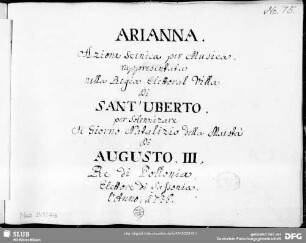 No. 75.
ARIANNA.
Azione Scenica per Musica.
rappresentata
nella Regia Elettoral Villa
Di
SANT' UBERTO.
per Solennizare
Il Giorno Natalizio della Maestà
Di
AUGUSTO. III.
Re di Pollonia,
Elettore di Sassonia.
l'Anno, 1736.
SLUB
DFG